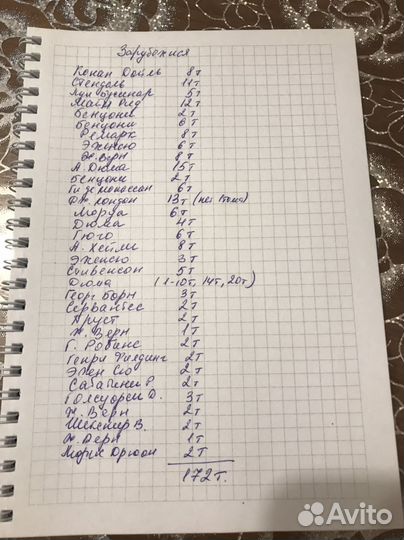 Зарубежися
Конан Дойль 8т
Стендаль 11т
Луи Бусинар 5т
Майн Рид 12т
Бенцони 2т
Бенцони 6т
Ремарк 8т
Эженсю 6т
Ж. Верн 8т
А. Дюма 15т
Бенцони 2т
Ги де мопассан 6т
Дж. Лондон 13т (нет 1тома)
Моруа 6т
Дюма 4т
Гюго 6т
А. Хейли 8т
Эженсю 3т
Стивенсон 5т
Дюма (1-10т, 14т, 20т)
Георг Борн 3т
Сервантес 2т
Пруст 2т
Ж. Верн 1т
Г. Робинс 2т
Генри Филдинг 2т
Эжен Сю 2т
Сабатини Р. 2т
Голсуорси Д. 3т
Ж. Верн 2т
Шекспир В. 2т
Ж. Верн 1т
Морис Дрюон 2т
172т.
Avito